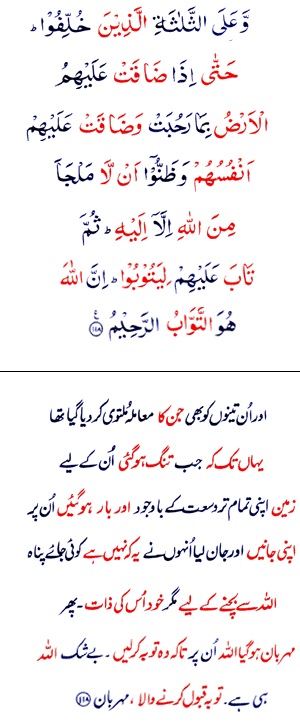 وَّعَلَى الثَّلٰثَةِ الَّذِيْنَ خُلِّفُوْا ؕ
حَتّٰۤى اِذَا ضَاقَتْ عَلَيْهِمُ
الْاَرْضُ بِمَا رَحُبَتْ وَضَاقَتْ عَلَيْهِمْ
اَنْفُسُهُمْ وَظَنُّوْۤا اَنْ لَّا مَلْجَاَ
مِنَ اللّٰهِ اِلَّاۤ اِلَيْهِ ؕ ثُمَّ
تَابَ عَلَيْهِمْ لِيَتُوْبُوْا ؕ اِنَّ اللّٰهَ
هُوَ التَّوَّابُ الرَّحِيْمُ ۝۱۱۸
اور اُن تینوں کو بھی جن کا معاملہ مُلتوی کردیا گیا تھا
یہاں تک کہ جب تنگ ہوگئی اُن کے لیے
زمین اپنی تمام تر وسعت کے باوجود اور بار ہوگئیں اُن پر
اپنی جانیں اور جان لیا اُنہوں نے یہ کہ نہیں ہے کوئی جائے پناہ
اللہ سے بچنے کے لیے مگر خود اُس کی ذات ۔ پھر
مہربان ہوگیا اللہ اُن پر تاکہ وہ توبہ کرلیں ۔ بے شک اللہ
ہی ہے ، توبہ قبول کرنے والا ، مہربان ۝۱۱۸